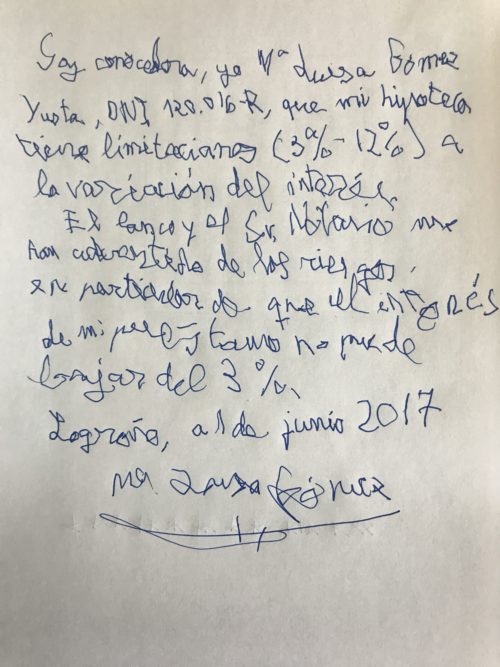 Soy conocedora, yo Mª Luisa Gómez
Yusta, DNI 120.016-R, que mi hipoteca
tiene limitaciones (3%-12%) a
la variación del interés.
El banco y el Sr. Notario me
han advertido de los riesgos,
en particular de que el interés
de mi préstamo no puede
bajar del 3%.
Logroño, a 1 de junio 2017
Mª Luisa Gómez